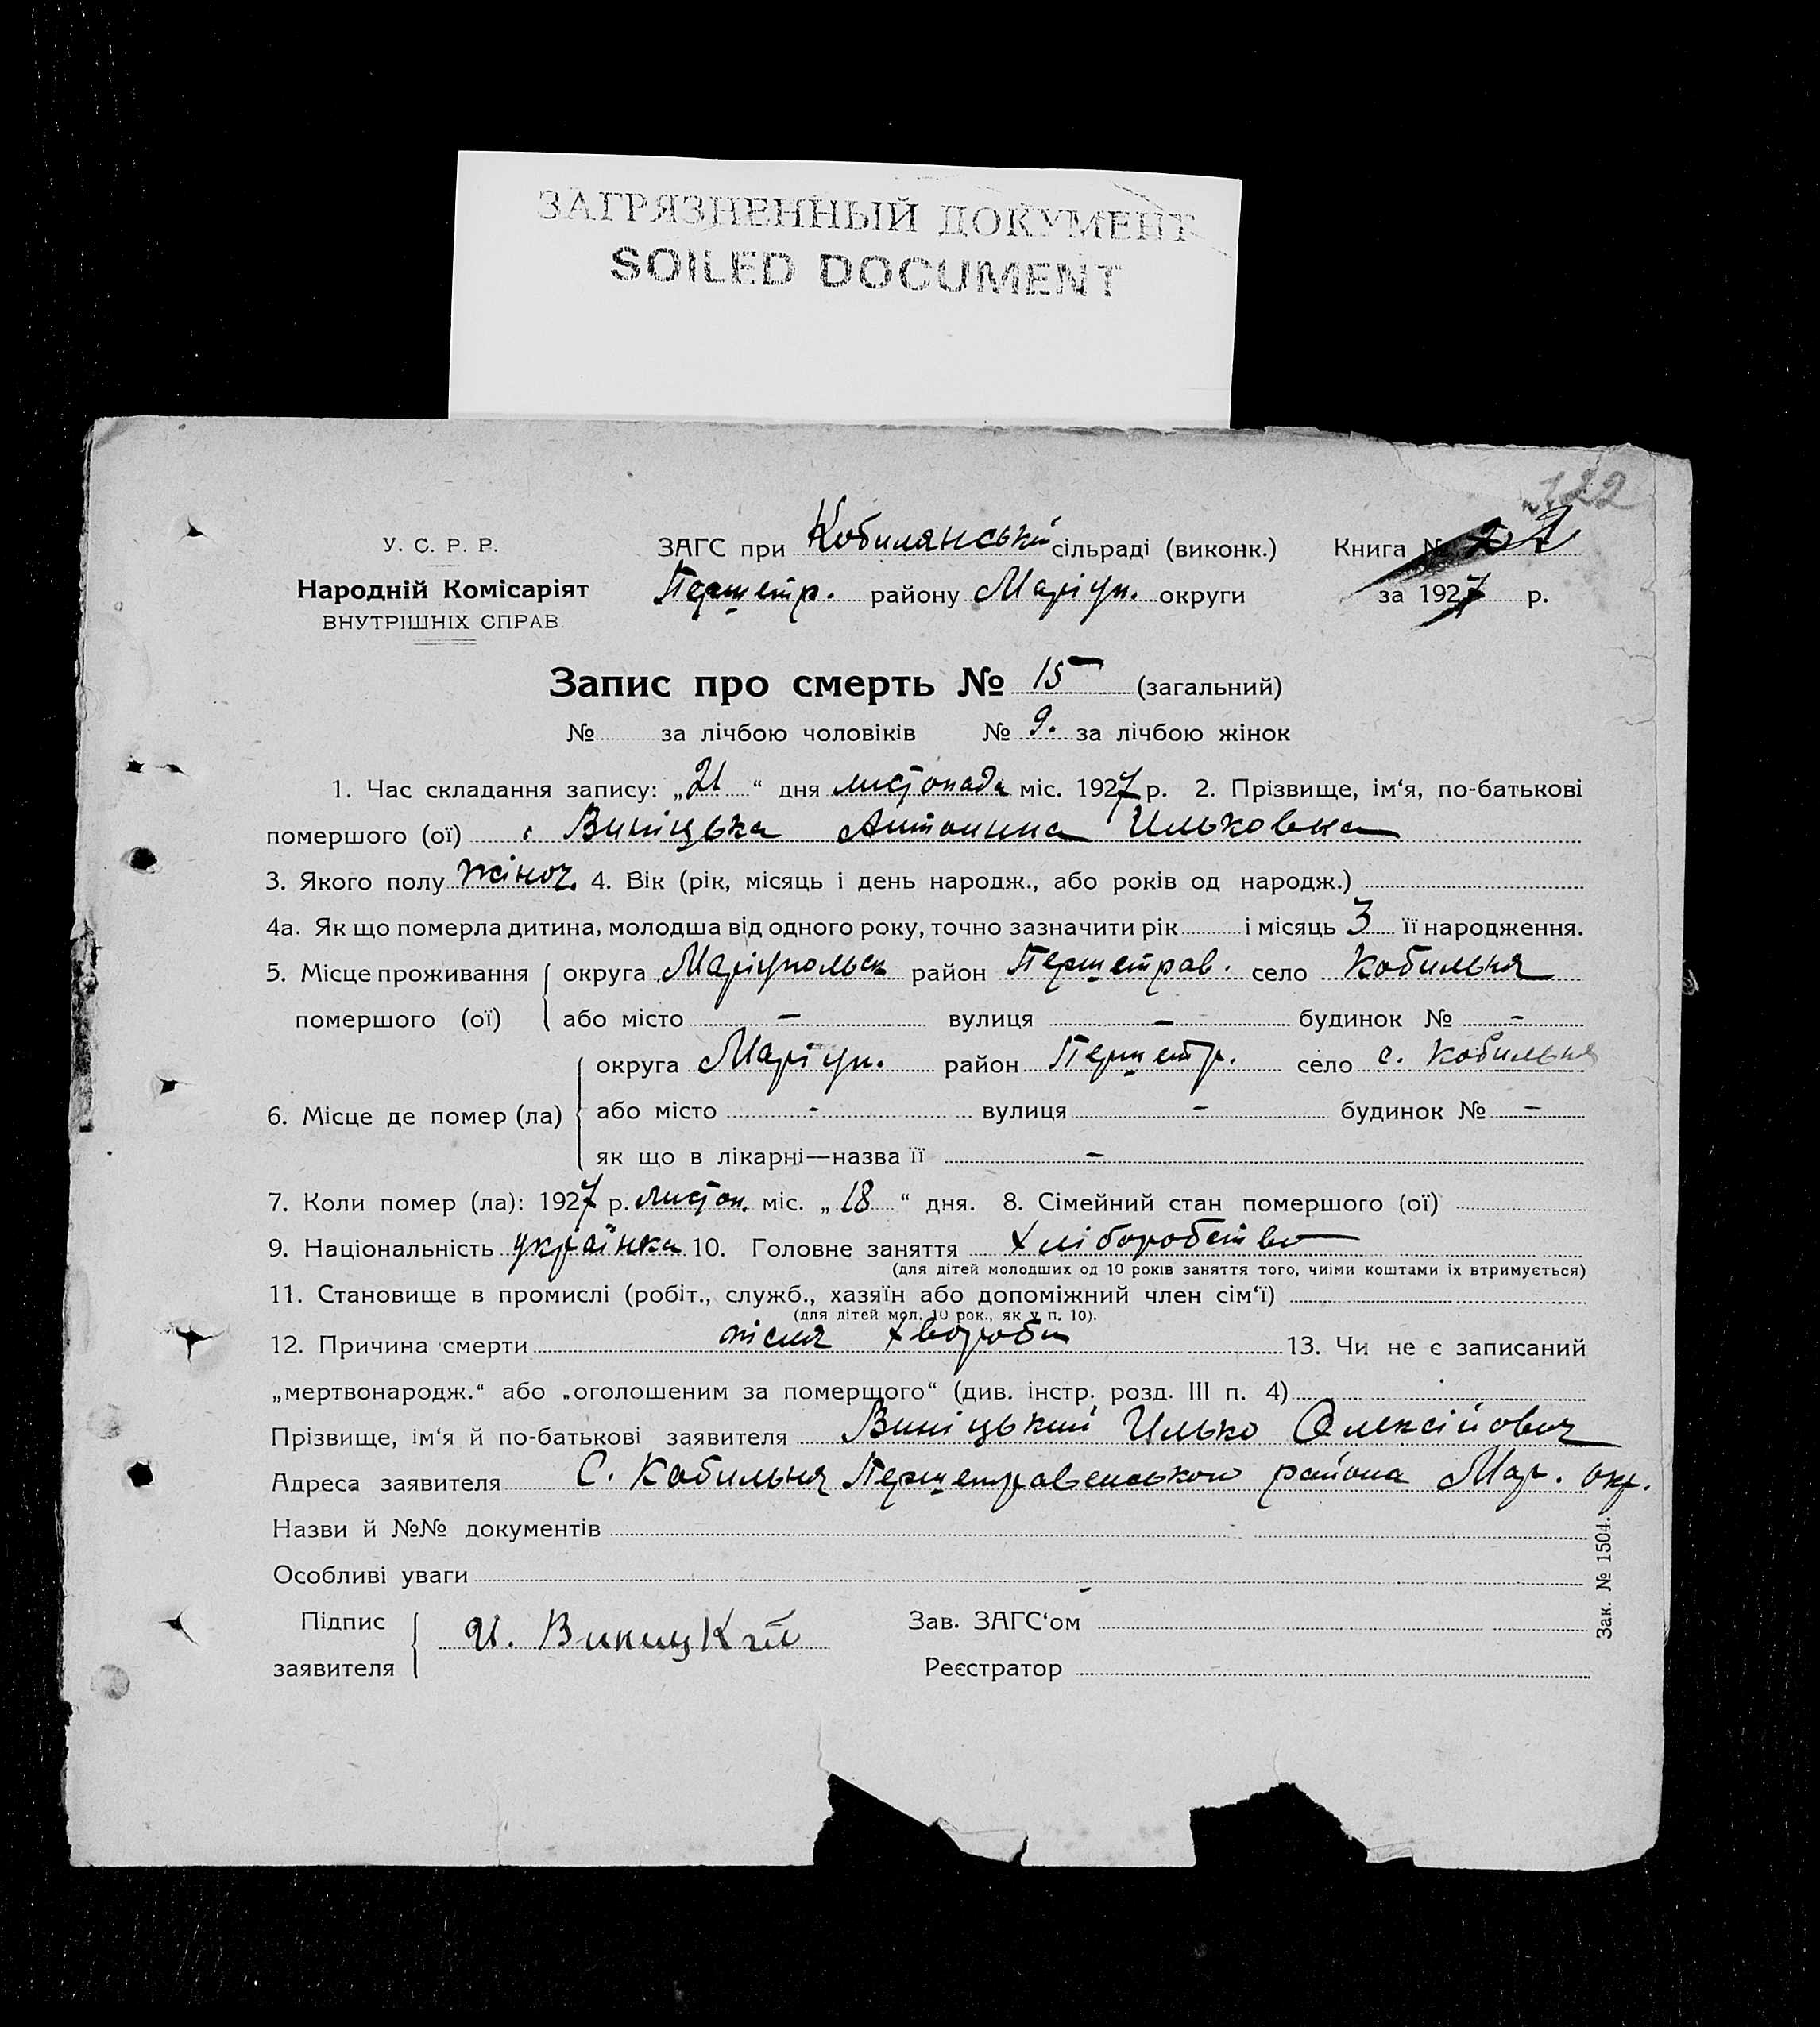 ЗАГРЯЗНЕННЫЙ ДОКУМЕНТ
SOILED DOCUMENT
122
У. С. Р. Р.
Народній Комісаріят
ВНУТРІШНІХ СПРАВ
ЗАГС при Кобилянській сільраді (виконк.) Книга №
Першетр. району Маріуп. округи за 1927 р.
Запис про смерть № 15 (загальний)
№ за лічбою чоловіків № 9. за лічбою жінок
1. Час складання запису: „21“ дня листопада міс. 1927 р. 2. Прізвище, ім‘я, по-батькові
помершого (ої) Виніцька Антонина Ильковна
3. Якого полу жіноч. 4. Вік (рік, місяць і день народж., або років од народж.)
4а. Як що померла дитина, молодша від одного року, точно зазначити рік і місяць 3 її народження.
5. Місце проживання помершого (ої) округа Маріупольск район Першетрав. село Кобильня
або місто – вулиця – будинок № –
6. Місце де помер (ла) округа Маріуп. район Першетр. село с. Кобильня
або місто - вулиця - будинок № –
як що в лікарні—назва її –
7. Коли помер (ла): 1927 р. листоп. міс. „18“ дня. 8. Сімейний стан помершого (ої)
9. Національність українка 10. Головне заняття хліборобство
(для дітей молодших од 10 років заняття того, чиїми коштами їх втримується)
11. Становище в промислі (робіт., служб., хазяїн або допоміжний член сім‘ї)
(для дітей мол. 10 рок., як у п. 10).
12. Причина смерти після хвороби 13. Чи не є записаний
„мертвонародж.“ або „оголошеним за померщого“ (див. інстр. розд. III п. 4)
Прізвище, ім‘я й по-батькові заявителя Виніцький Илько Олексійович
Адреса заявителя С. Кобильня Першетравенського района Мар. окр.
Назви й №№ документів
Особливі уваги
Підпис заявителя И. Виницкий
Зав. ЗАГС‘ом
Реєстратор
Зак. № 1504.